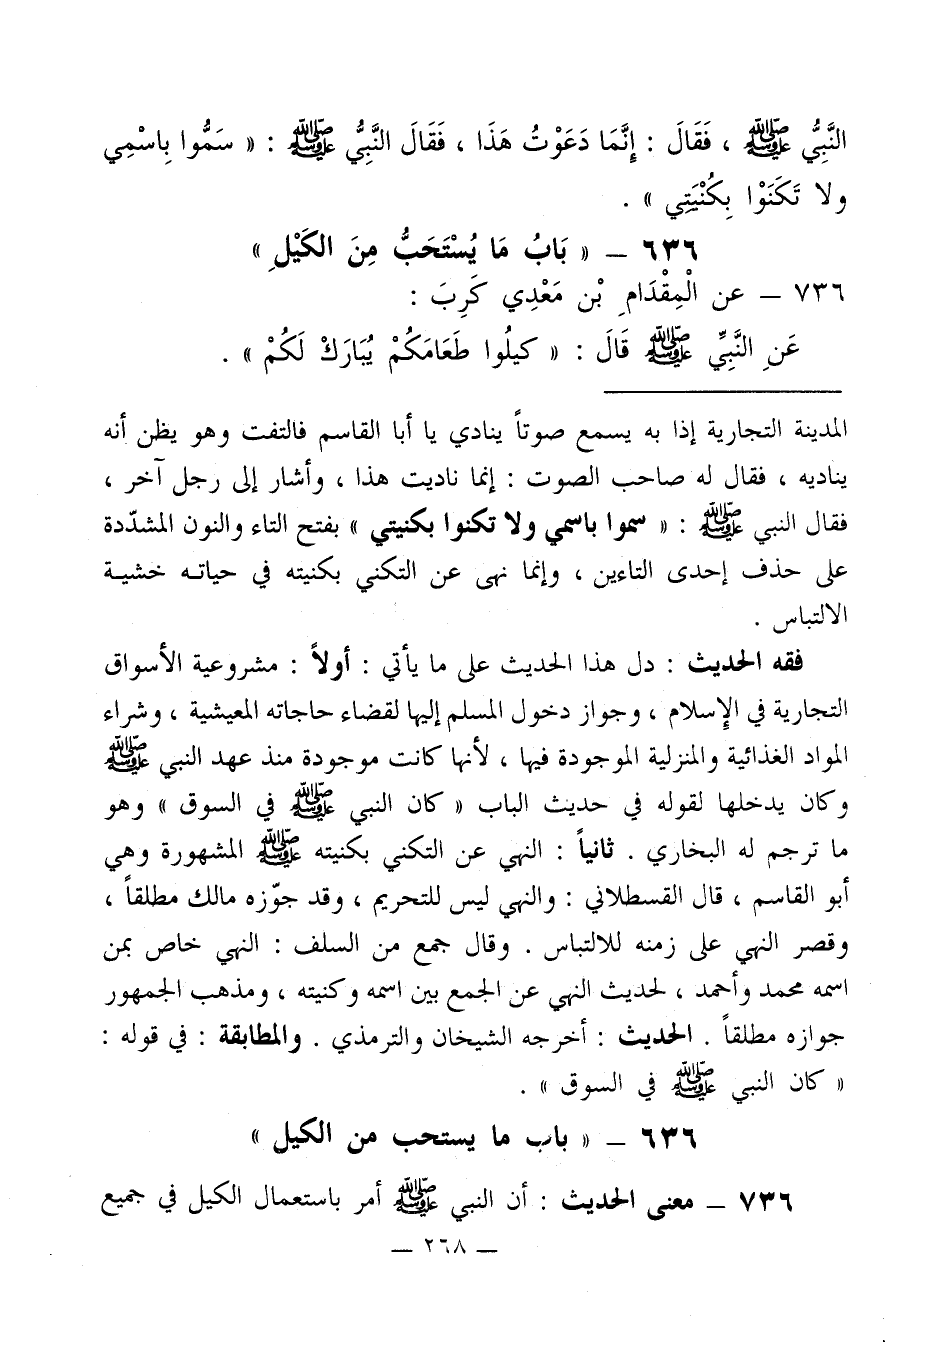 النَّبِيُّ ﷺ ، فَقَالَ : إِنَّمَا دَعَوْتُ هَذَا ، فَقَالَ النَّبِيُّ ﷺ : « سَمُّوا بِاسْمِي
ولا تَكَنَّوْا بِكُنْيَتِي » .
٦٣٦ – « بَابُ مَا يُسْتَحَبُّ مِنَ الكَيْلِ »
٧٣٦ – عن الْمِقْدَامِ بْن مَعْدِي كَرِبَ :
عَنِ النَّبِيِّ ﷺ قَالَ : « كيلُوا طَعَامَكُمْ يُبَارَكْ لَكُمْ » .
المدينة التجارية إذا به يسمع صوتاً ينادي يا أبا القاسم فالتفت وهو يظن أنه
يناديه ، فقال له صاحب الصوت : إنما ناديت هذا ، وأشار إلى رجل آخر ،
فقال النبي ﷺ : « سموا باسمي ولا تكنوا بكنيتي » بفتح التاء والنون المشدّدة
على حذف إحدى التاءين ، وإنما نهى عن التكني بكنيته في حياته خشية
الالتباس .
فقه الحديث : دل هذا الحديث على ما يأتي : أولاً : مشروعية الأسواق
التجارية في الإسلام ، وجواز دخول المسلم إليها لقضاء حاجاته المعيشية ، وشراء
المواد الغذائية والمنزلية الموجودة فيها ، لأنها كانت موجودة منذ عهد النبي ﷺ
وكان يدخلها لقوله في حديث الباب « كان النبي ﷺ في السوق » وهو
ما ترجم له البخاري . ثانياً : النهي عن التكني بكنيته ﷺ المشهورة وهي
أبو القاسم ، قال القسطلاني : والنهي ليس للتحريم ، وقد جوّزه مالك مطلقاً ،
وقصر النهي على زمنه للالتباس . وقال جمع من السلف : النهي خاص بمن
اسمه محمد وأحمد ، لحديث النهي عن الجمع بين اسمه وكنيته ، ومذهب الجمهور
جوازه مطلقاً . الحديث : أخرجه الشيخان والترمذي . والمطابقة : في قوله :
« كان النبي ﷺ في السوق » .
٦٣٦ – « باب ما يستحب من الكيل »
٧٣٦ – معنى الحديث : أن النبي ﷺ أمر باستعمال الكيل في جميع
– ٢٦٨ –